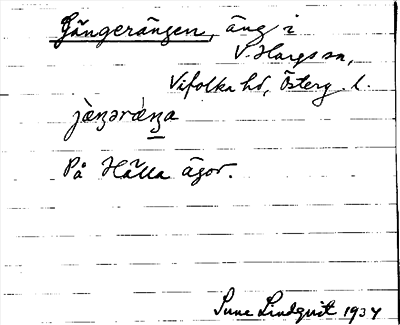 Gängerängen, äng i
V. Hargs sn,
Vifolka hd, Österg. l.
jæ̀ŋərǽŋa
På Hälla ägor.
Sune Lindqvist 1937